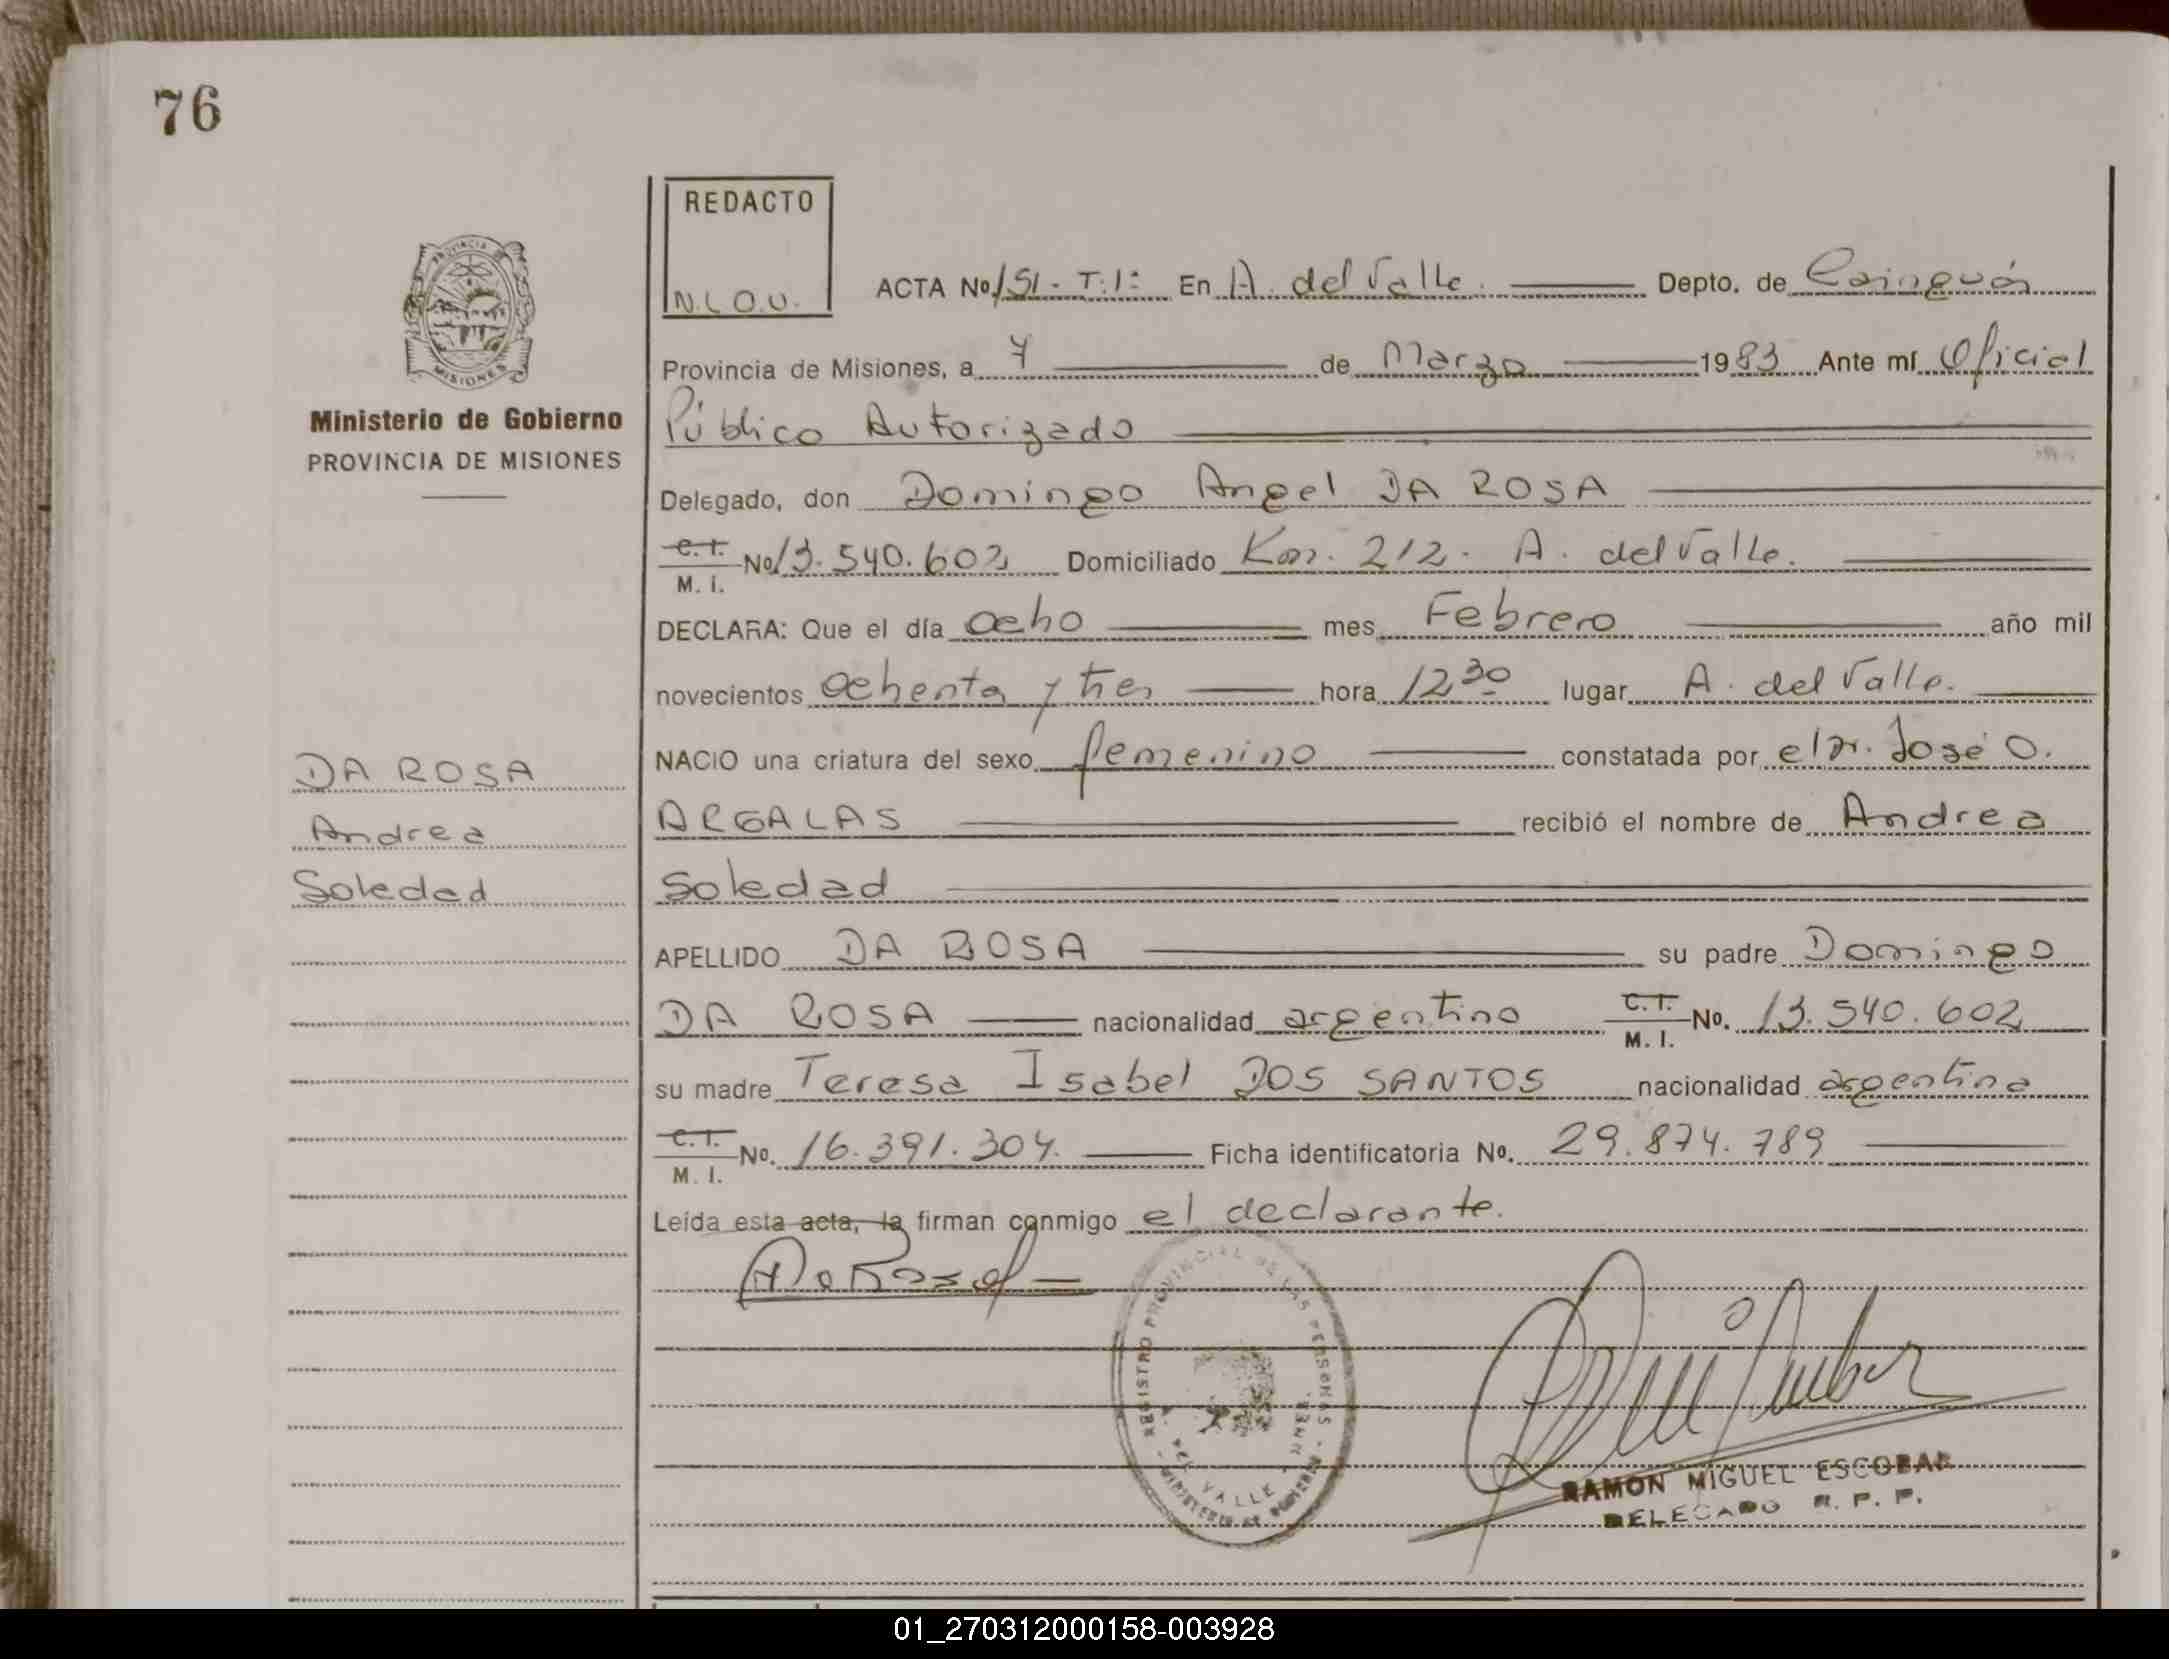 76
REDACTO
N.L.O.U.
ACTA No. 151 - T. 1: En A. del Valle. Depto. de Cainguás
Provincia de Misiones, a 7 de Marzo 1983 Ante mí Oficial
Público Autorizado
Delegado, don Domingo Angel DA ROSA
C.I. M. I. No 13.540.602 Domiciliado Km. 212. A. del Valle.
DECLARA: Que el día ocho mes Febrero año mil
novecientos ochenta y tres hora 12 30 lugar A. del Valle.
NACIO una criatura del sexo femenino constatada por el Dr. José O.
ARGALAS recibió el nombre de Andrea
Soledad
APELLIDO DA ROSA su padre Domingo
DA ROSA nacionalidad argentino C.I. M. I. No. 13.540.602
su madre Teresa Isabel DOS SANTOS nacionalidad argentina
C.I. M. I. No. 16.391.304. Ficha identificatoria No. 29.874.789
Leída esta acta, la firman conmigo el declarante.
PROVINCIA
MISIONES
Ministerio de Gobierno
PROVINCIA DE MISIONES
DA ROSA
Andrea
Soledad
DaRosa
REGISTRO PROVINCIAL DE LAS PERSONAS - MINISTERIO DE GOBIERNO -
A. DEL VALLE
RAMON MIGUEL ESCOBAR
DELEGADO R. P. P.
01_270312000158-003928